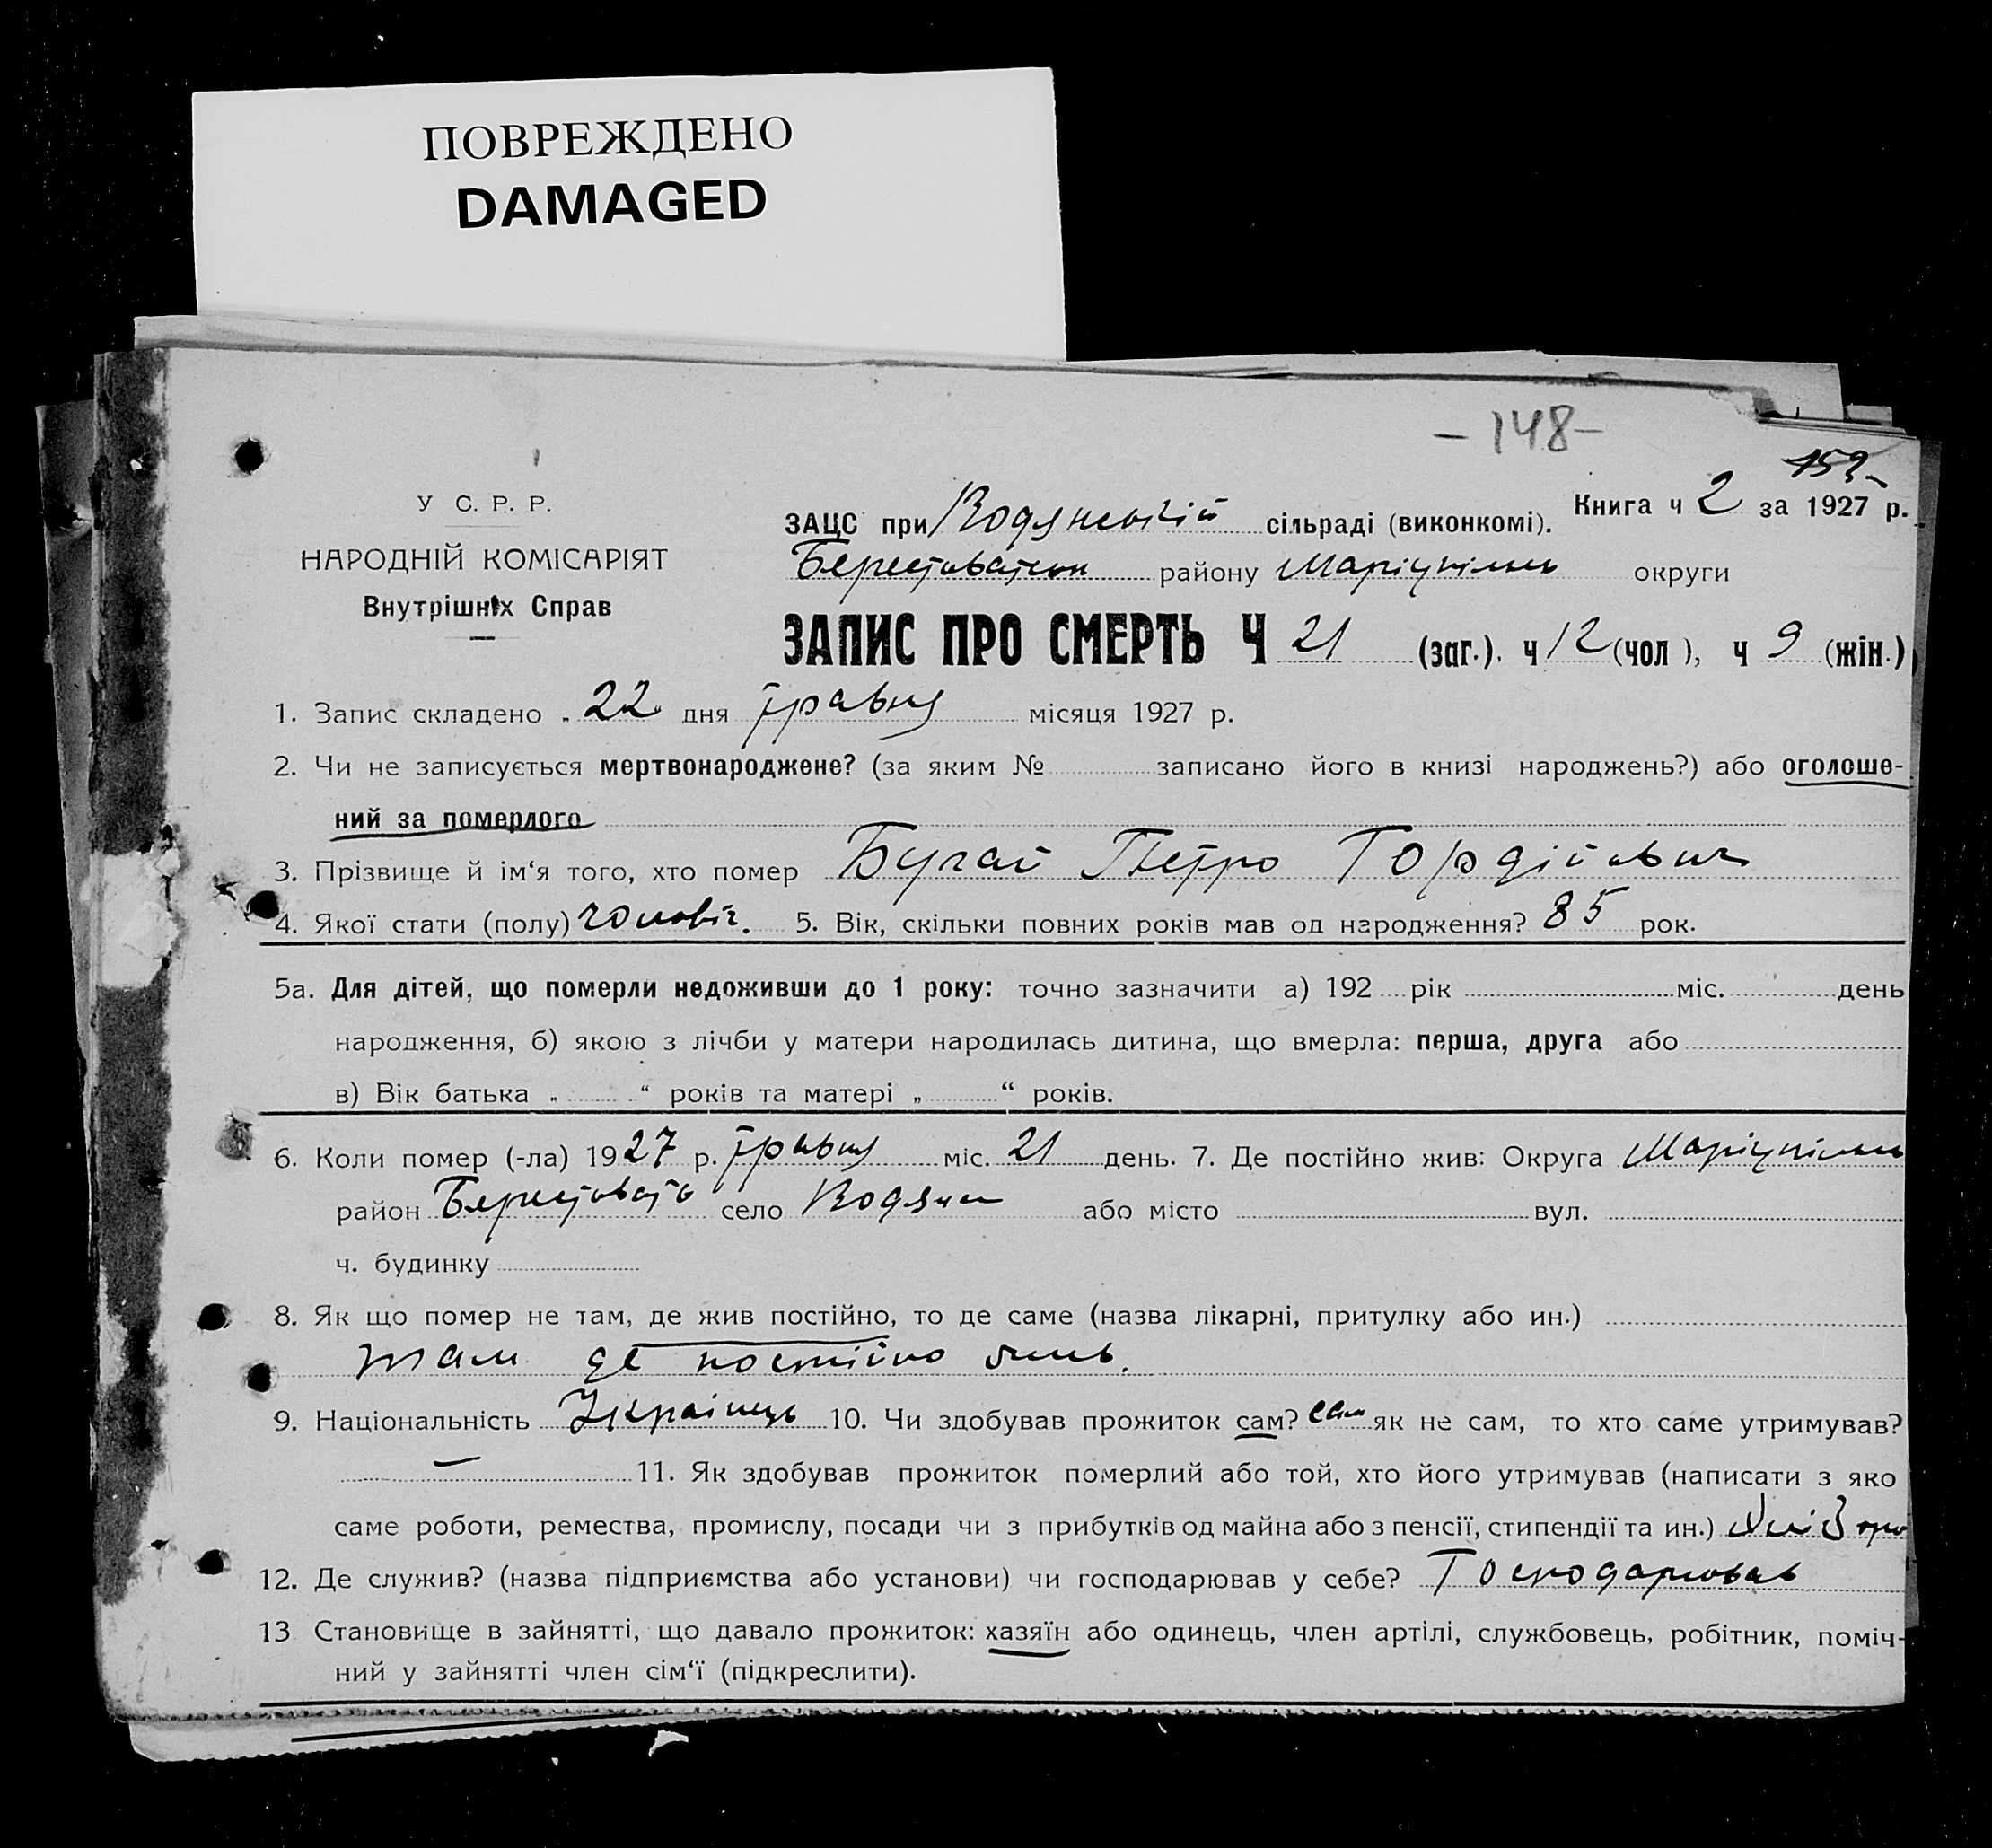 ПОВРЕЖДЕНО
DAMAGED
– 148 –
153 –
У С. Р. Р.
НАРОДНІЙ КОМІСАРІЯТ
Внутрішніх Справ
ЗАЦС при Водянській сільраді (виконкомі). Книга ч 2 за 1927 р.
району округи
ЗАПИС ПРО СМЕРТЬ Ч 21 (заг.). ч 12 (чол), ч 9 (жін.)
1. Запис складено „ 22 дня травня місяця 1927 р.
2. Чи не записується мертвонароджене? (за яким № записано його в книзі народжень?) або оголоше-
ний за померлого
3. Прізвище й ім‘я того, хто помер Бугай Петро Гордійович
4. Якої стати (полу) чоловіч. 5. Вік, скільки повних років мав од народження? 85 рок.
5а. Для дітей, що померли недоживши до 1 року: точно зазначити а) 192 рік міс. день
народження, б) якою з лічби у матери народилась дитина, що вмерла: перша, друга або
в) Вік батька „ “ років та матері „ “ років.
6. Коли помер (-ла) 1927 р. травня міс. 21 день. 7. Де постійно жив: Округа
район село або місто вул.
ч. будинку
8. Як що помер не там, де жив постійно, то де саме (назва лікарні, притулку або ин.)
там де постійно
9. Національність Українець 10. Чи здобував прожиток сам? сам як не сам, то хто саме утримував?
— 11. Як здобував прожиток померлий або той, хто його утримував (написати з яко
саме роботи, ремества, промислу, посади чи з прибутків од майна або з пенсії, стипендії та ин.)
12. Де служив? (назва підприємства або установи) чи господарював у себе? Господарював
13 Становище в зайнятті, що давало прожиток: хазяїн або одинець, член артілі, службовець, робітник, поміч-
ний у зайнятті член сім‘ї (підкреслити).